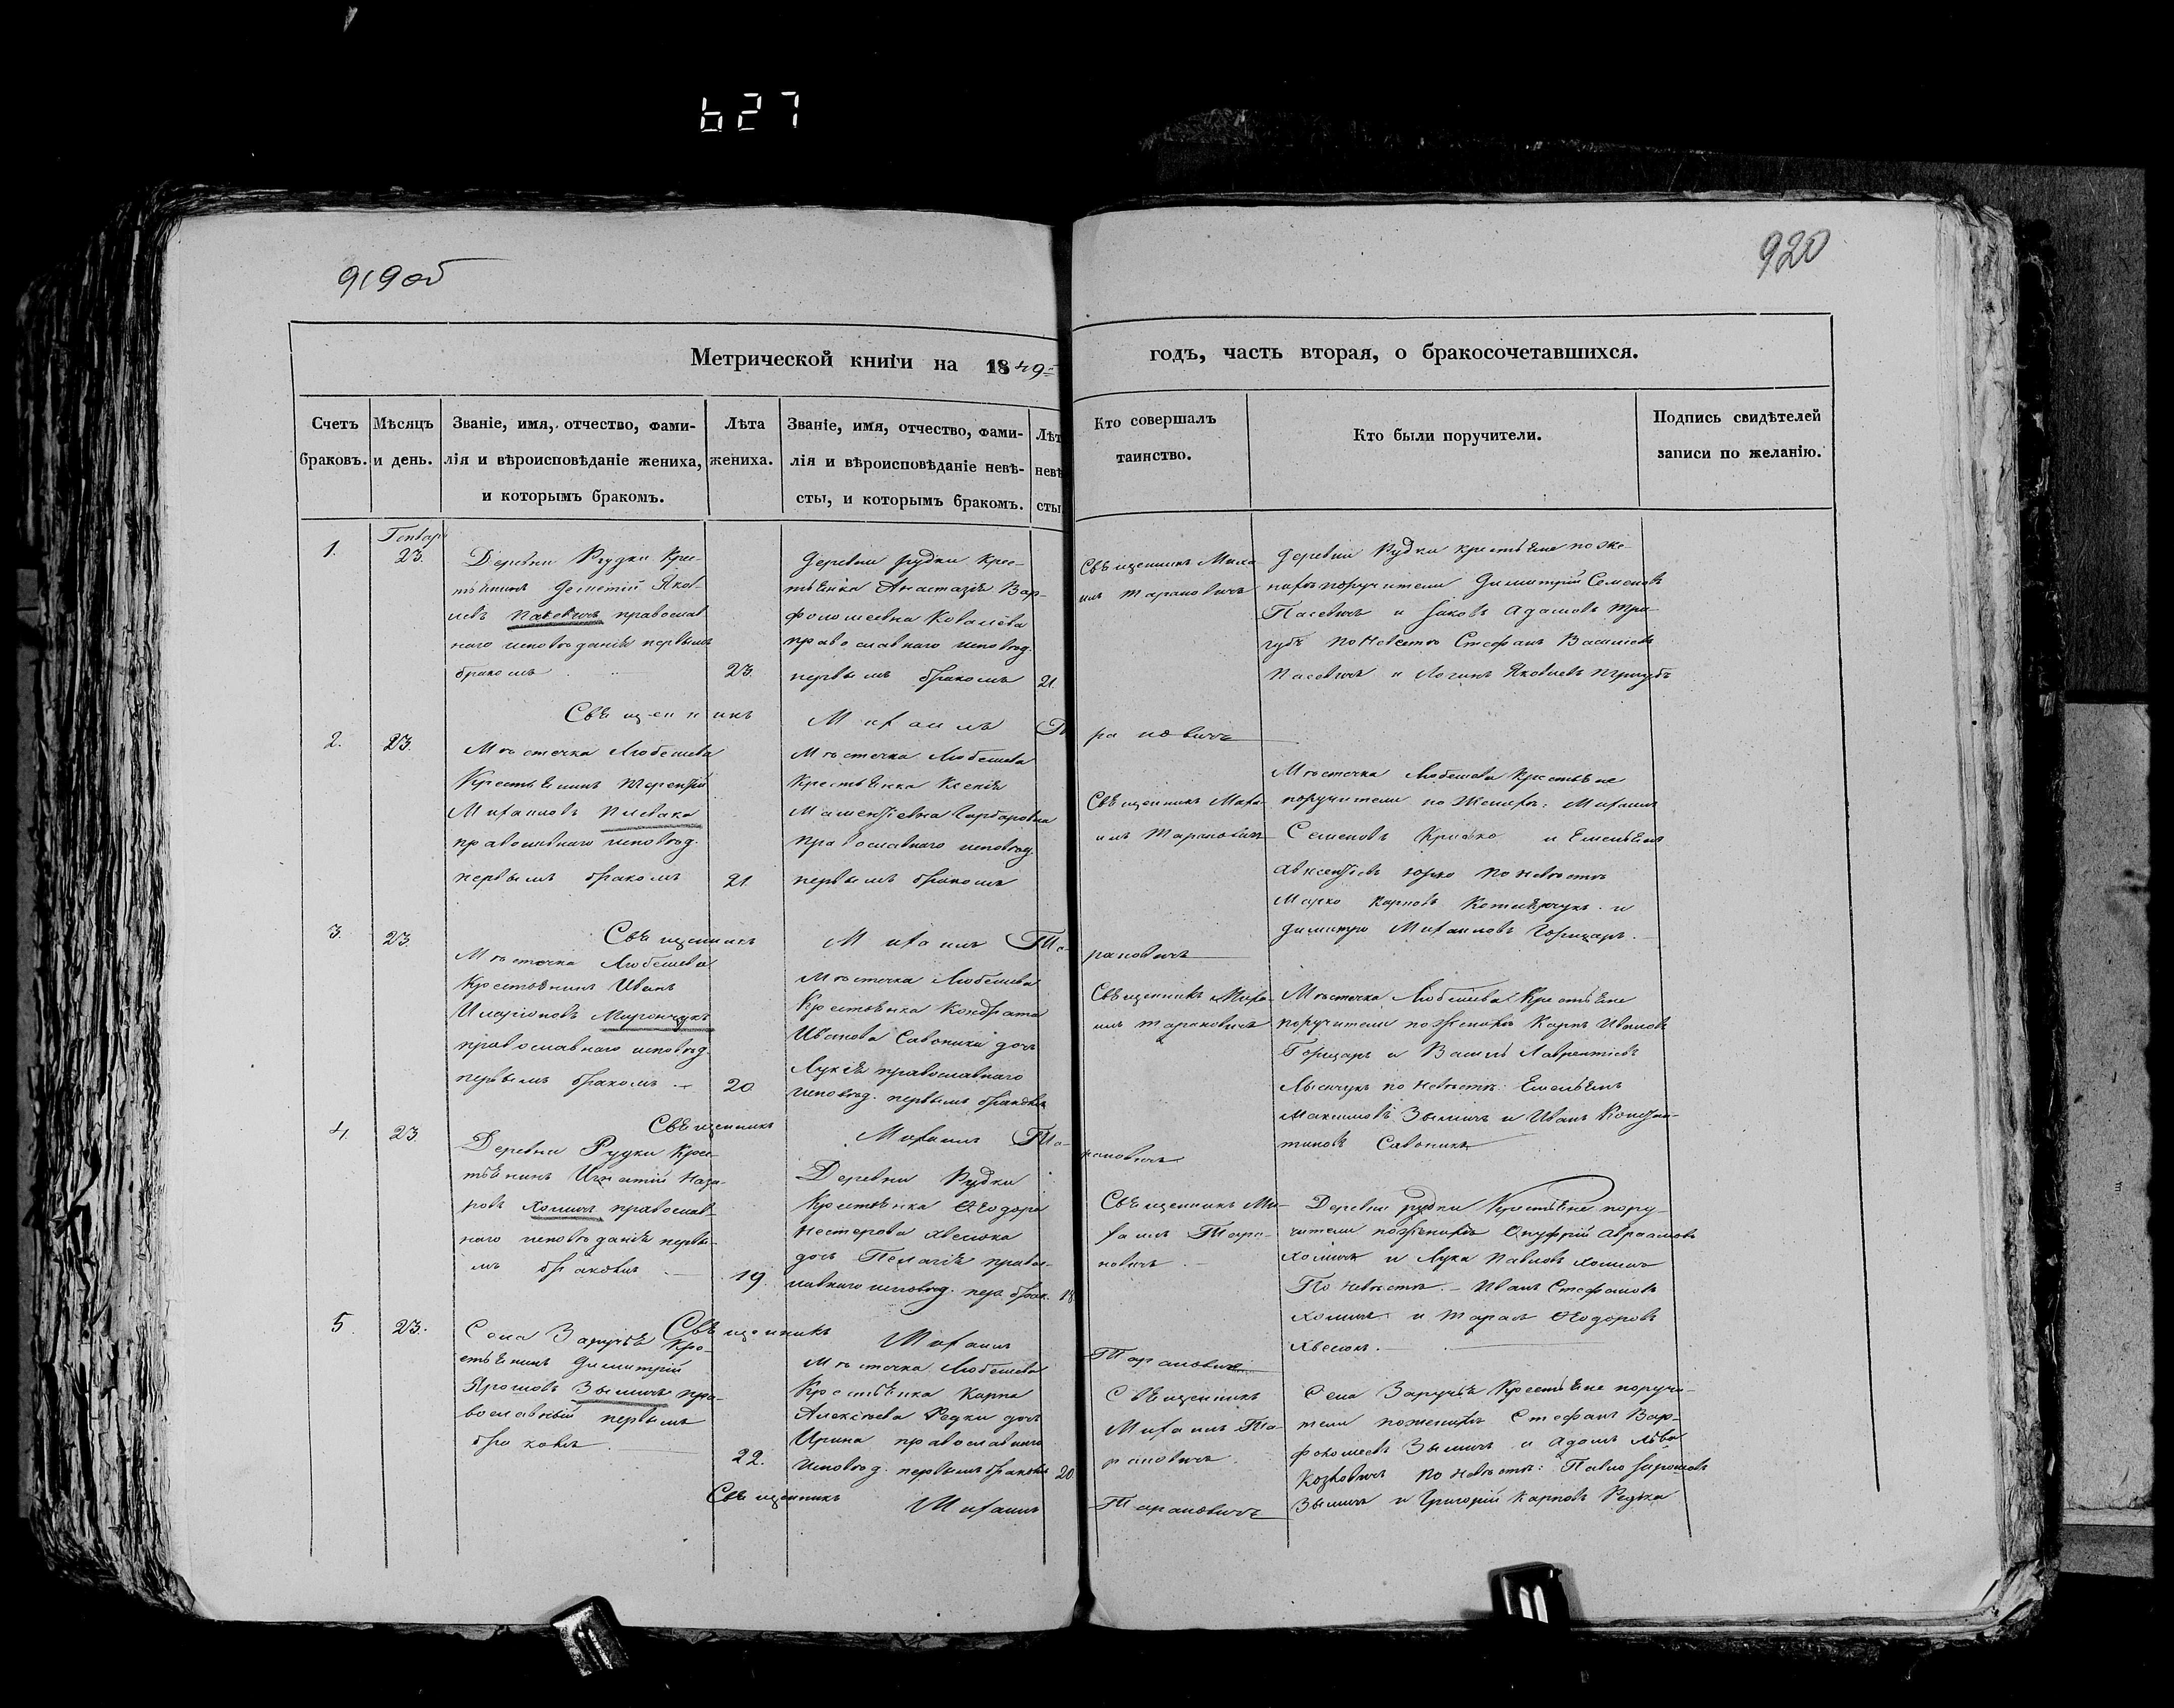 627
919 об
920
Метрической книги на 1849
годъ, часть вторая, о бракосочетавшихся.
Счетъ браковъ.
Мѣсяцъ и день.
Званіе, имя, отчество, фами-
лія и вѣроисповѣданіе жениха,
и которымъ бракомъ.
Лѣта
жениха.
Званіе, имя, отчество, фами-
лія и вѣроисповѣданіе невѣ-
сты, и которымъ бракомъ.
Лѣт
невѣ
сты
Кто совершалъ
таинство.
Кто были поручители.
Подпись свидѣтелей
записи по желанію.
1.
23.
Деревни Рудки Крес-
тьянинъ Яков-
левъ Пасевичъ православ
наго исповѣданія первымъ
бракомъ
23.
Деревни Рудки Крес-
тьянка Анастазія Вар-
фоломеевна Ковалева
православнаго исповѣд.
первымъ бракомъ
21
Священникъ Миха
илъ Тарановичъ
Деревни Рудки крестьяне по же-
нихѣ поручители Димитрій Семеновъ
Пасевичъ и Іаковъ Адамовъ
по невестѣ Стефанъ Василіевъ
Пасевичъ и Логинъ Яковлевъ
Священникъ Михаилъ Та
рановичъ
2.
23.
Мѣстечка Любешева
Крестьянинъ Терентій
Михаиловъ Плевака
православнаго исповѣд.
первымъ бракомъ
21
Мѣстечка Любешева
Крестьянка Ксенія
православнаго исповѣд.
первымъ бракомъ
Священникъ Миха-
илъ Тарановичъ
Мѣстечка Любешева Крестьяне
поручители по Женихѣ: Михаилъ
Семеновъ и Емельянъ
Авксентіевъ Юрко по невѣстѣ
Марко Карповъ и
Димитро Михаиловъ Горщаръ.
Священникъ Михаилъ Та-
рановичъ
3.
23
Мѣстечка Любешева
Крестьянинъ Иванъ
Иларіоновъ Мирончукъ
православнаго исповѣд.
первымъ бракомъ
20
Мѣстечка Любешева
Крестьянка Кондрата
Иванова Савоника дочь
Лукія православнаго
исповѣд. первымъ бракомъ
Священникъ Миха-
илъ Тарановичъ
Мѣстечка Любешева Крестьяне
поручители по Женихѣ Карпъ Ивановъ
Горщаръ и Василъ Лаврентіевъ
Лысичукъ по невѣстѣ: Емельянъ
Максимовъ Зымичъ и Иванъ Констан-
тиновъ Савоникъ
Священникъ Михаилъ Та-
рановичъ
4.
23.
Деревни Рудки Крес-
тьянинъ Игнатій Наза-
ровъ Хомичъ православ-
наго исповѣданія первы-
мъ бракомъ
19.
Деревни Рудки
Крестьянка Ѳеодора
Нестерова Хвесюка
дочь Пелагія право-
славнаго исповѣд. пер. брак.
18
Священникъ Ми-
хаилъ Тара-
новичъ
Деревни Рудки Крестьяне пору-
чители по Женихѣ Онуфрій Авраамовъ
Хомичъ и Лука Павловъ Хомичъ
По невѣстѣ.- Иванъ Стефановъ
Хомичъ и Тарасъ Ѳеодоровъ
Хвесюк.
Священникъ Михаилъ
Тарановичъ
5.
23.
Села Заручья Кре-
стьянинъ Димитрій
Ярошовъ Зымичъ пра-
вославный первымъ
бракомъ
22.
Мѣстечка Любешева
Крестьянка Карпа
Алексѣева Редки дочь
Ирина православнаго
исповѣд. первымъ бракомъ
20
Священникъ
Михаилъ Та-
рановичъ.
Села Заручья Крестьяне поручи-
тели по женихѣ Стефанъ Вар-
фоломеевъ Зымичъ и Адамъ
Козловичъ по невѣстѣ: Павло
Зымичъ и Григорій Карповъ Редька
Священникъ Михаилъ
Тарановичъ